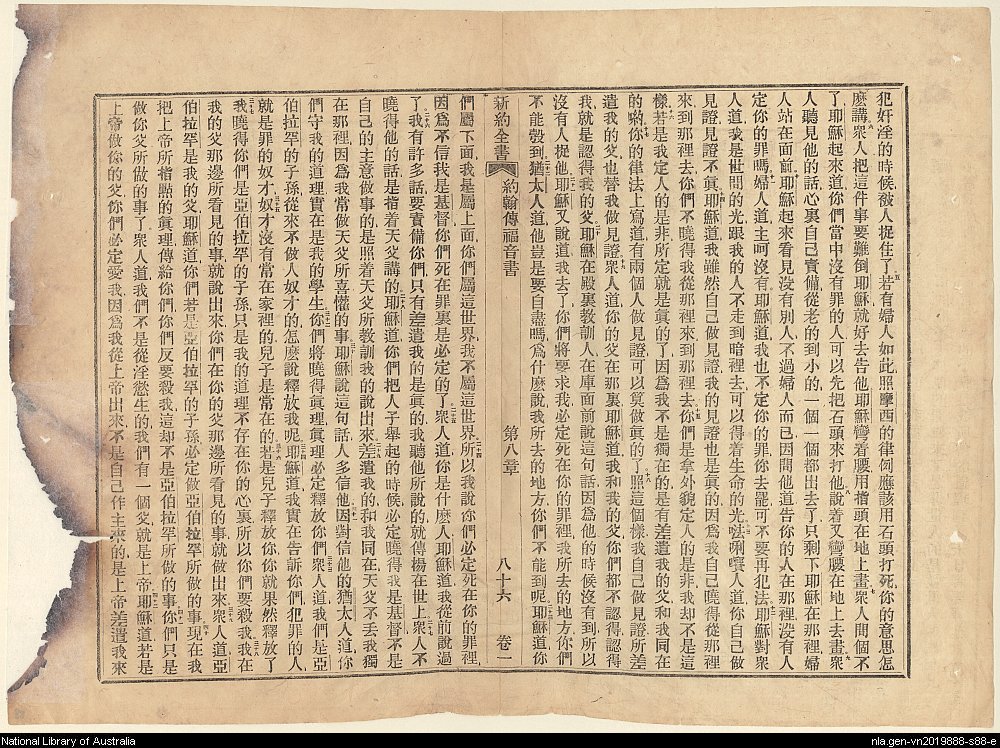 犯奸淫的時候被人捉住了若有婦人如此照摩西的律例應該用石頭打死你的意思怎
麽講衆人把這件事要難倒耶穌就好去告他耶穌彎着腰用指頭在地上畫衆人問個不
了耶穌起來道你們當中沒有罪的人可以先把石頭來打他說着又彎腰在地上去畫衆
人聽見他的話心裏自己責備從老的到小的一個一個都出去了只剩下耶穌在那裡婦
人站在面前耶穌起來看見沒有別人不過婦人而已因問他道告你的人在那裡沒有人
定你的罪嗎婦人道主呵沒有耶穌道我也不定你的罪你去罷可不要再犯法耶穌對衆
人道我是世間的光跟我的人不走到暗裡去可以得着生命的光𠵽唎㘔人道你自己做
見證見證不眞耶穌道我雖然自己做見證我的見證也是眞的因爲我自己曉得從那裡
來到那裡去你們不曉得我從那裡來到那裡去你們是拿外貌定人的是非我却不是這
樣若是我定人的是非所定就是眞的了因爲我不是獨在的是有差遣我的父和我同在
的喲你的律法上寫道有兩個人做見證可以算做眞的了照這個樣我自己做見證所差
遣我的父也替我做見證衆人道你的父在那裏耶穌道我和我的父你們都不認得認得
我就是認得我的父耶穌在殿裏教訓人在庫面前說這句話因爲他的時候沒有到所以
沒有人捉他耶穌又說道我去了你們將要求我必定死在你的罪裡我所去的地方你們
不能彀到猶太人道他豈是要自盡嗎爲什麽說我所去的地方你們不能到呢耶穌道你
新約全書 約翰傳福音書 第八章 八十六 卷一
們屬下面我是屬上面你們屬這世界我不屬這世界所以我說你們必定死在你的罪裡
因爲不信我是基督你們死在罪裏是必定的了衆人道你是什麽人耶穌道我從前說過
了我有許多話要責備你們只有差遣我的是眞的我聽他所說的就傳揚在世上衆人不
曉得他的話是指着天父講的耶穌道你們把人子舉起的時候必定曉得我是基督不是
自己的主意做事的是照着天父所教訓我的說出來差遣我的和我同在天父不丟我獨
在那裡因爲我常做天父所喜懽的事耶穌說這句話人多信他因對信他的猶太人道你
們守我的道理實在是我的學生你們將曉得眞理眞理必定釋放你們衆人道我們是亞
伯拉罕的子孫從來不做人奴才的怎麽說釋放我呢耶穌道我實在告訴你們犯罪的人
就是罪的奴才奴才沒有常在家裡的兒子是常在的若是兒子釋放你你就果然釋放了
我曉得你們是亞伯拉罕的子孫只是我的道理不存在你的心裏所以你們要殺我我在
我的父那邊所看見的事就說出來你們在你的父那邊所看見的事就做出來衆人道亞
伯拉罕是我的父耶穌道你們若是亞伯拉罕的子孫必定做亞伯拉罕所做的事現在我
把上帝所指點的眞理傳給你們你們反要殺我這却不是亞伯拉罕所做的事你們只是
做你父所做的事了衆人道我們不是從淫慾生的我們有一個父就是上帝耶穌道若是
上帝做你的父你們必定愛我因爲我從上帝出來不是自己作主來的是上帝差遣我來
National Library of Australia
nla.gen-vn2019888-s88-e